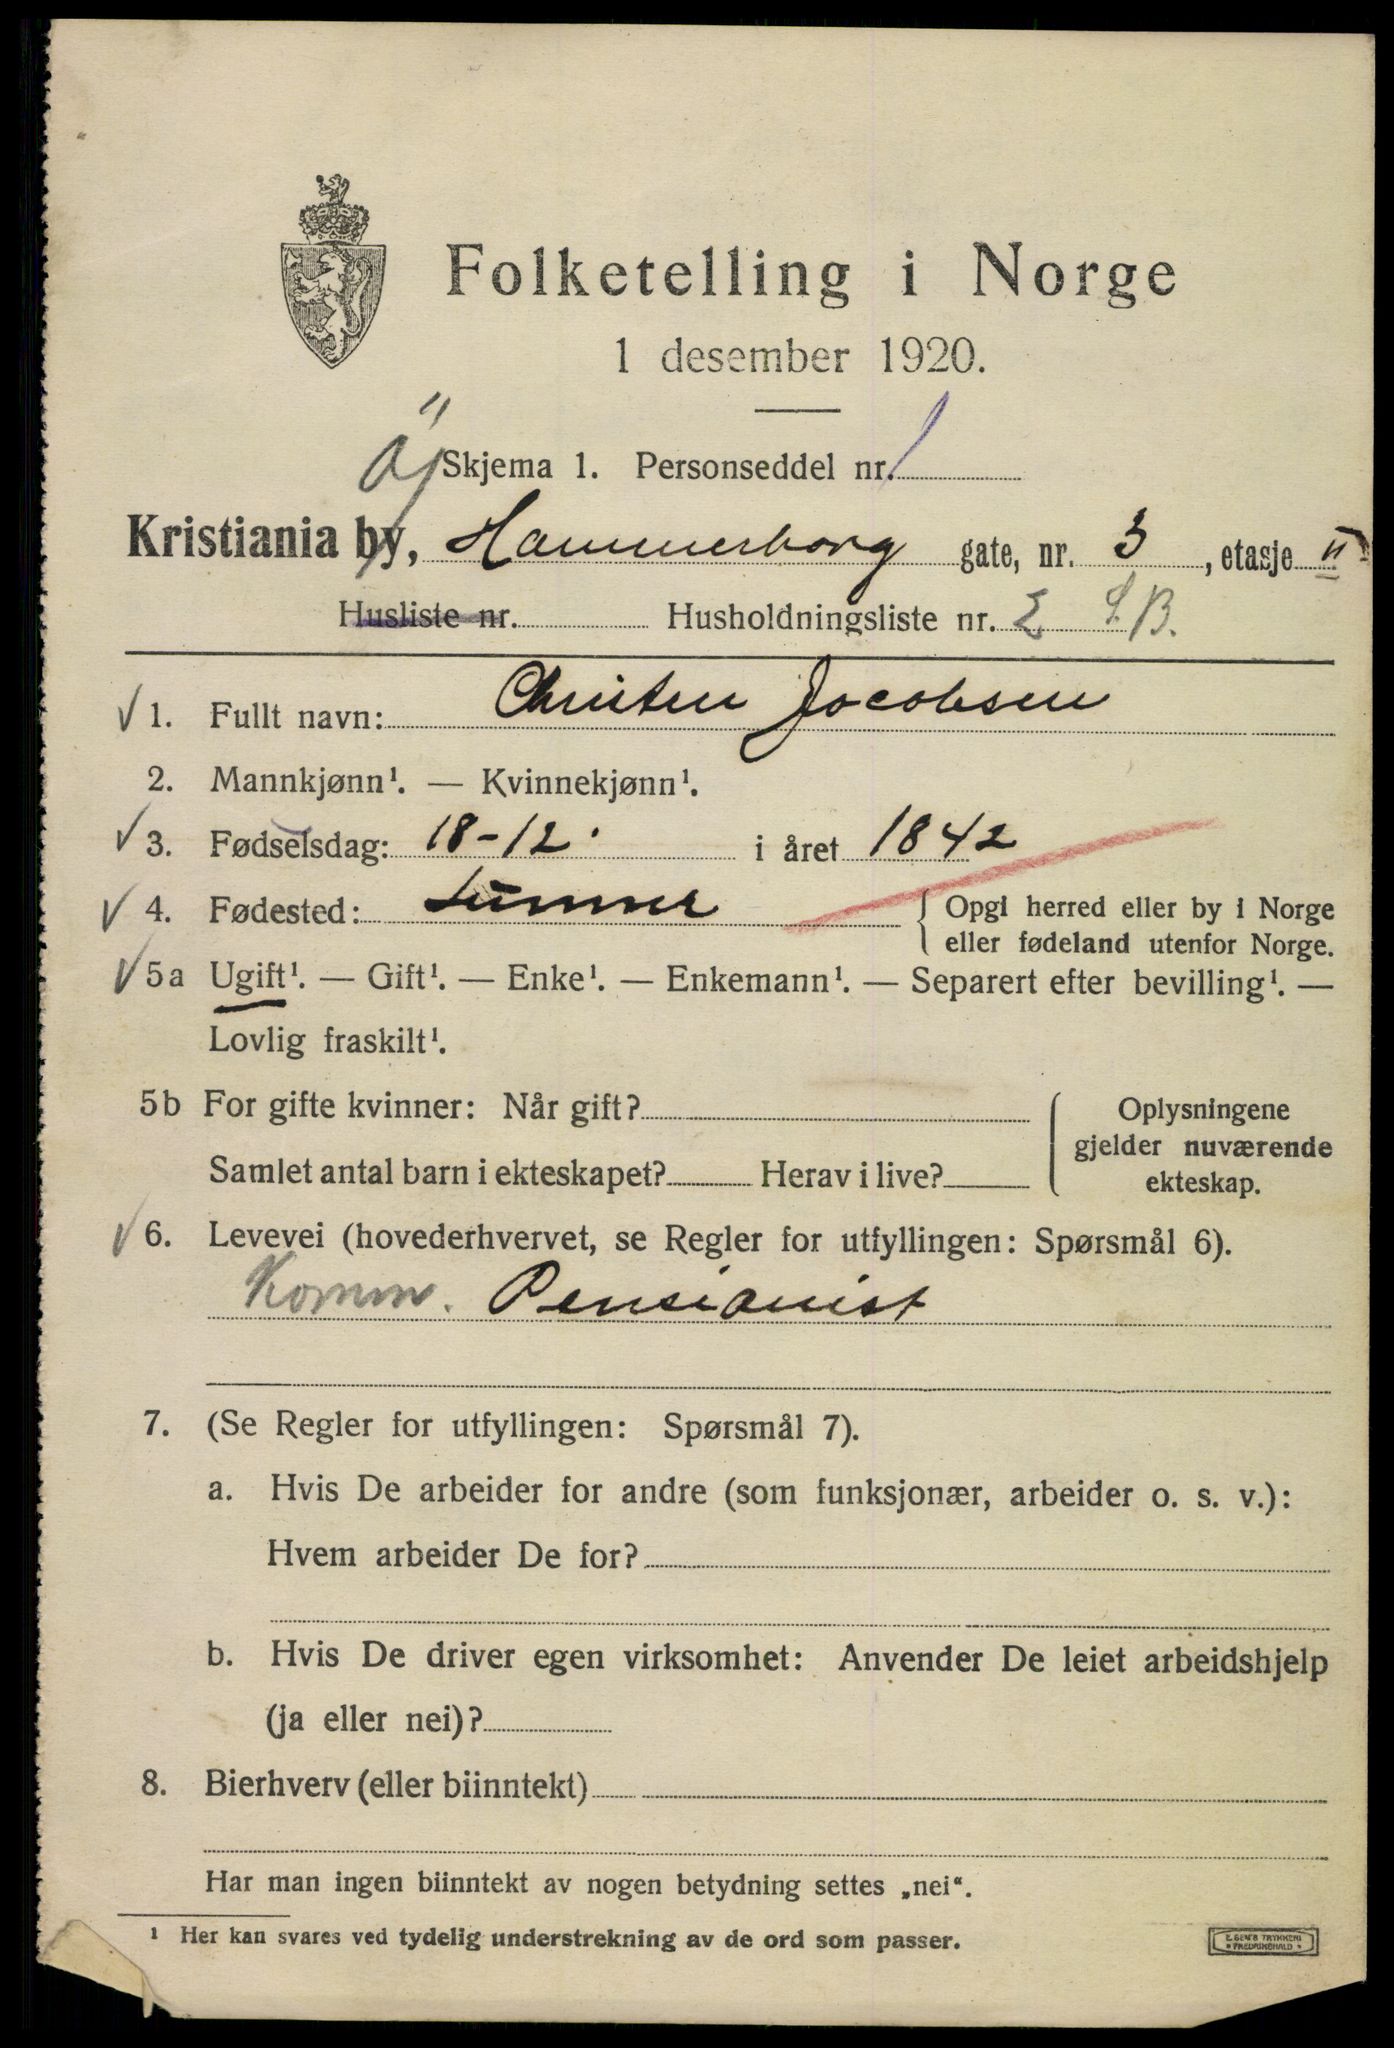 Folketelling i Norge
1 desember 1920.
Skjema 1. Personseddel nr. 1
Kristiania by, Hammerborg gate, nr. 3, etasje II
Husliste nr. Husholdningsliste nr. S.B.
1. Fullt navn: Christen Jacobsen
2. Mannkjønn¹. — Kvinnekjønn¹.
3. Fødselsdag: 18-12. i året 1842
4. Fødested: Lunner { Opgi herred eller by i Norge
eller fødeland utenfor Norge.
5a Ugift¹. — Gift¹. — Enke¹. — Enkemann¹. — Separert efter bevilling¹. —
Lovlig fraskilt¹.
5b For gifte kvinner: Når gift?
Samlet antal barn i ekteskapet? Herav i live?
Oplysningene
gjelder nuværende
ekteskap.
6. Levevei (hovederhvervet, se Regler for utfyllingen: Spørsmål 6).
Komm. Pensionist
7. (Se Regler for utfyllingen: Spørsmål 7).
a. Hvis De arbeider for andre (som funksjonær, arbeider o. s. v.):
Hvem arbeider De for?
b. Hvis De driver egen virksomhet: Anvender De leiet arbeidshjelp
(ja eller nei)?
8. Bierhverv (eller biinntekt)
Har man ingen biinntekt av nogen betydning settes „nei“.
¹ Her kan svares ved tydelig understrekning av de ord som passer.
E. SEM'S TRYKKERI
FREDRIKSHALD